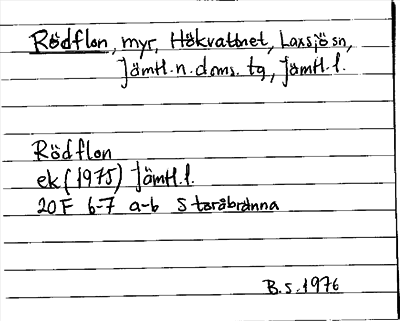 Rödflon, myr, Hökvattnet, Laxsjö sn,
Jämtl.n.doms. tg, Jämtl.l.
Rödflon
ek (1975) Jämtl.l.
20F 6-7 a-b Storåbränna
B.S. 1976